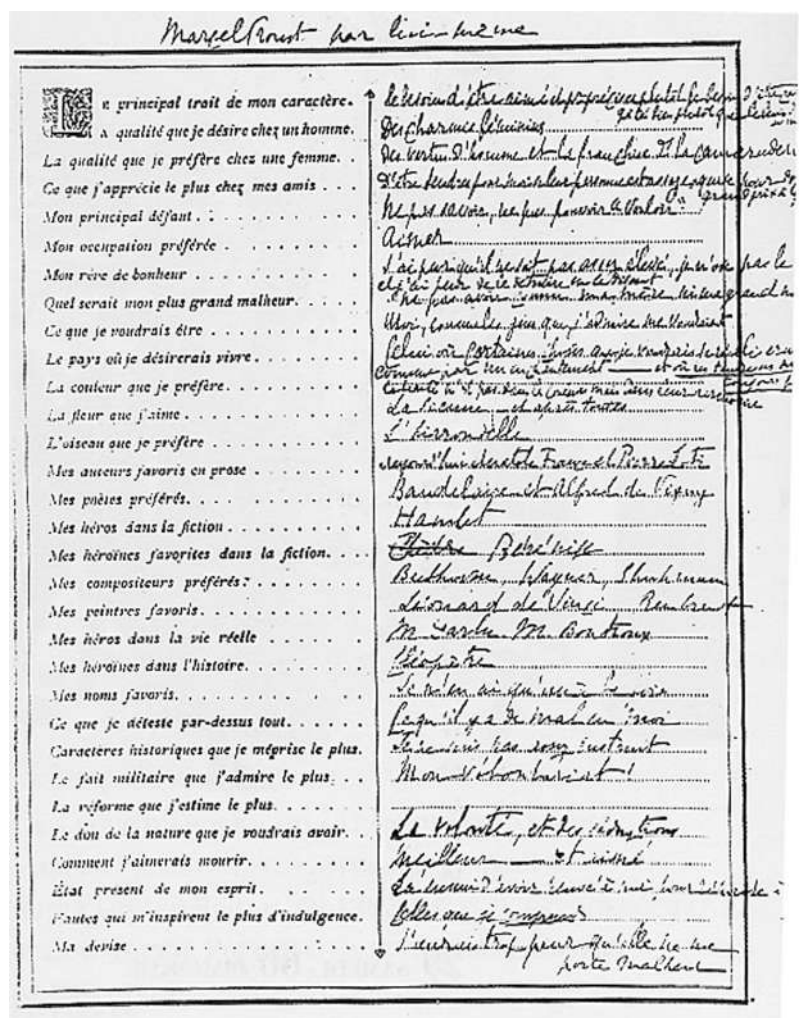 Marcel Proust par lui-même
Le principal trait de mon caractère. Le besoin d'être aimé et pour préciser plutôt le besoin d'être
gâté bien plutôt que le besoin d'
La qualité que je désire chez un homme. Des charmes féminins
La qualité que je préfère chez une femme. . Des vertus d'homme et la franchise dans la camaraderie
Ce que j'apprécie le plus chez mes amis . . . D'être tendres pour moi si leur personne est assez exquise pour
grand prix à
Mon principal défaut . . . . . . . . . . Ne pas savoir, ne pas pouvoir "vouloir"
Mon occupation préférée . . . . . . . . . Aimer
Mon rêve de bonheur . . . . . . . . . . J'ai peur qu'il ne soit pas assez élevé, je n'ose pas le
et j'ai peur de le détruire en le disant
Quel serait mon plus grand malheur. . . . . ne pas avoir connu ma mère ni ma grand'm
Ce que je voudrais être . . . . . . . . . Moi, comme les gens que j'admire me voudraient
Le pays où je désirerais vivre . . . . . . . Celui où certaines choses que je voudrais se
comme par un enchantement — et où les tendresses
toujours
La couleur que je préfère. . . . . . . . . beauté n'est pas dans les couleurs mais dans leur harmonie
La fleur que j'aime . . . . . . . . . . La sienne — et après toutes
L'oiseau que je préfère . . . . . . . . . L'hirondelle
Mes auteurs favoris en prose . . . . . . . Aujourd'hui Anatole France et Pierre Loti
Mes poètes préférés. . . . . . . . . . . Baudelaire et Alfred de Vigny
Mes héros dans la fiction . . . . . . . . Hamlet
Mes héroïnes favorites dans la fiction. . . . Phèdre Bérénice
Mes compositeurs préférés: . . . . . . . . Beethoven, Wagner, Shuhmann
Mes peintres favoris. . . . . . . . . . . Léonard de Vinci Rembrandt
Mes héros dans la vie réelle . . . . . . . M. Darlu M. Boutroux
Mes héroïnes dans l'histoire. . . . . . . . Cléopâtre
Mes noms favoris. . . . . . . . . . . . Je n'en ai qu'un à la fois
Ce que je déteste par-dessus tout. . . . . . Ce qu'il y a de mal en moi
Caractères historiques que je méprise le plus. Je ne suis pas assez instruit
Le fait militaire que j'admire le plus. . . Mon volontariat !
La réforme que j'estime le plus. . . . . .
Le don de la nature que je voudrais avoir. . . La volonté, et des séductions
Comment j'aimerais mourir. . . . . . . . Meilleur — et aimé
État présent de mon esprit. . . . . . . L'ennui d'avoir pensé à moi pour
Fautes qui m'inspirent le plus d'indulgence. Celles que je comprends
Ma devise . . . . . . . . . . . . . J'aurais trop peur qu'elle ne me
porte malheur